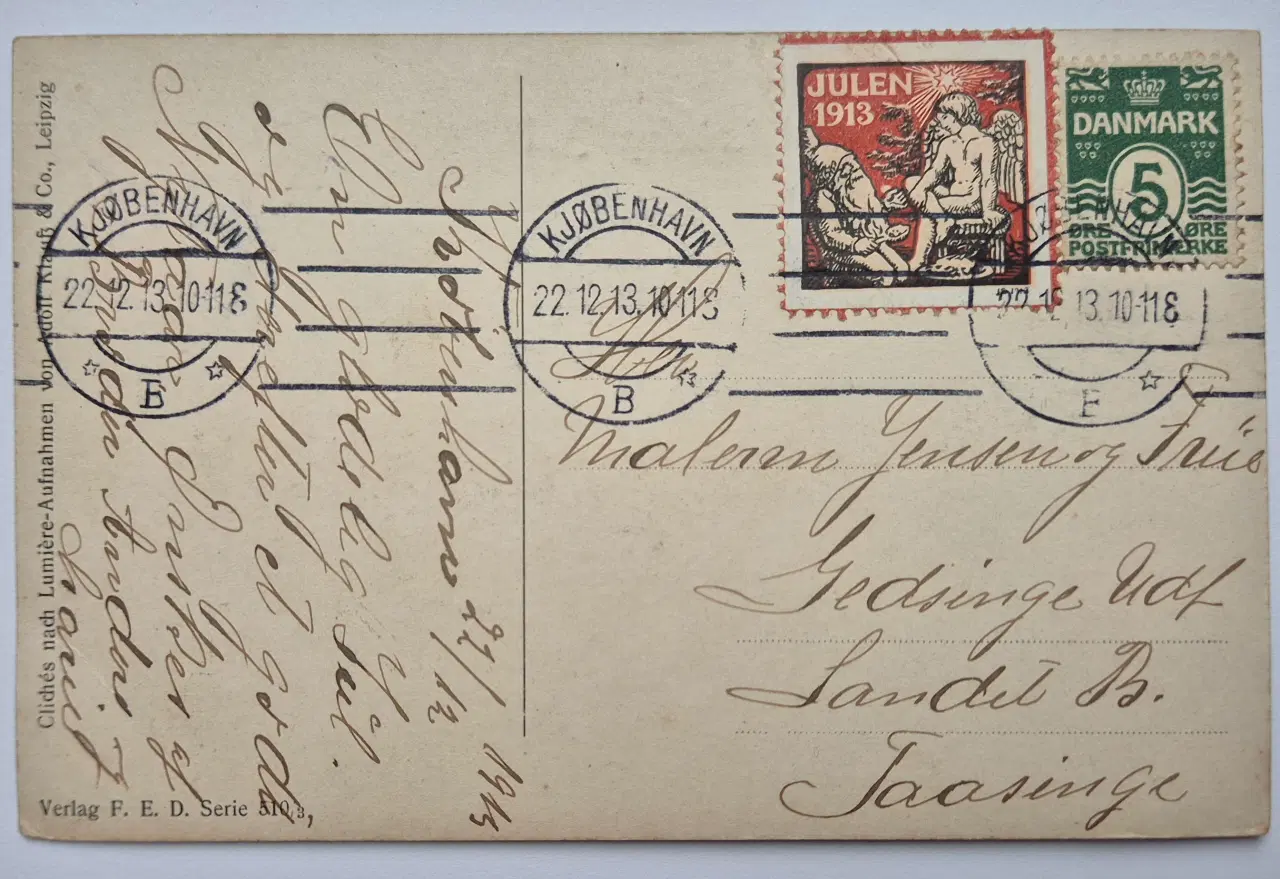 Clichés nach Lumière-Aufnahmen von Adolf Klauß & Co., Leipzig
Verlag F. E. D. Serie 510/3,
Kjøbenhavn 22/12 1913
En glædelig Jul.
og ønsket et godt
Nytaar Ønskes af
Anders
JULEN
1913
DANMARK
5
ØRE ØRE
POSTFRIMÆRKE
KJØBENHAVN
22.12.13.10-11 E
B
KJØBENHAVN
22.12.13.10-11 E
B
KJØBENHAVN
22.12.13.10-11 E
Hr.
Malerm Jensen og Frue
Gedsinge Udf
Landet B.
Taasinge